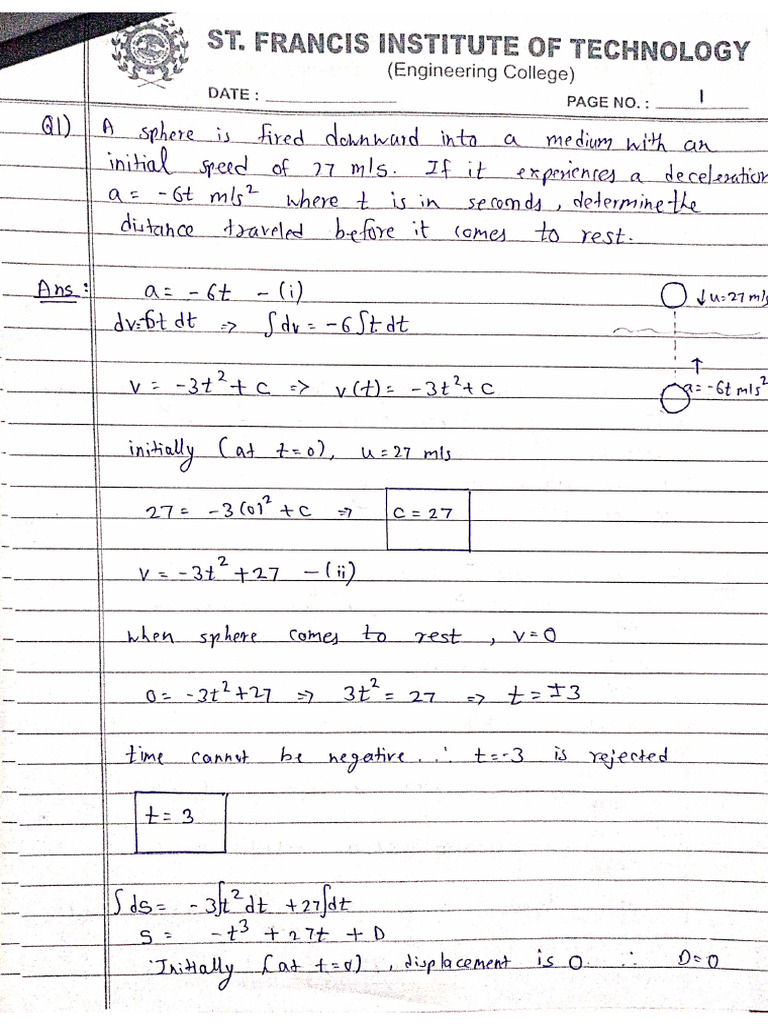 ST. FRANCIS INSTITUTE OF TECHNOLOGY
(Engineering College)
DATE :
PAGE NO. : 1
Q1) A sphere is fired downward into a medium with an
initial speed of 27 m/s. If it experiences a deceleration
a = -6t m/s² where t is in seconds, determine the
distance traveled before it comes to rest.
Ans: a = -6t - (i)
↓u=27 m/s
dv=-6t dt => ∫dv = -6∫t dt
↑
a = -6t m/s²
v = -3t² + c => v(t) = -3t² + c
initially (at t=0), u = 27 m/s
27 = -3(0)² + c => c = 27
v = -3t² + 27 - (ii)
when sphere comes to rest, v=0
0 = -3t²+27 => 3t² = 27 => t = ±3
time cannot be negative. ∴ t=-3 is rejected
t = 3
∫ds = -3∫t²dt + 27∫dt
s = -t³ + 27t + D
Initially (at t=0), displacement is 0. ∴ D=0